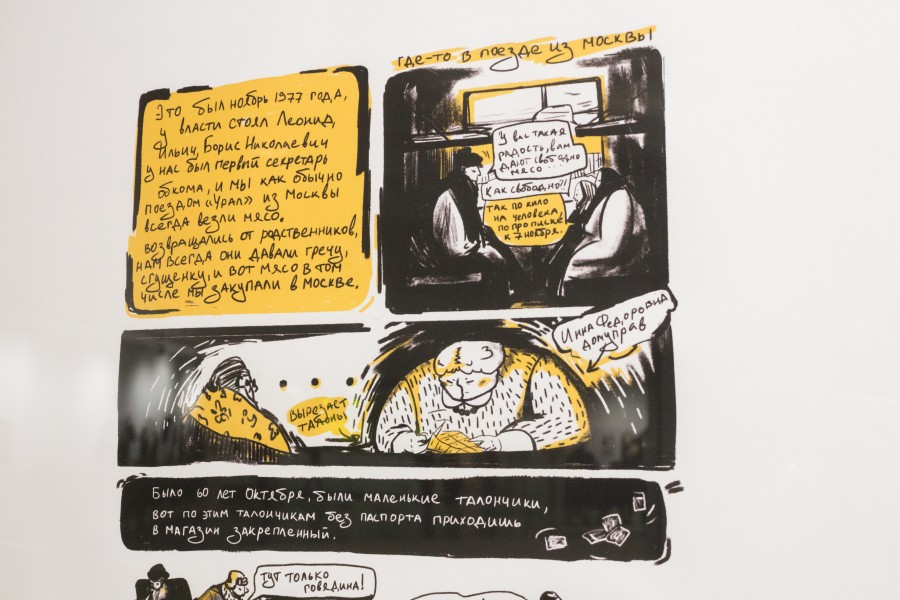 Это был ноябрь 1977 года,
у власти стоял Леонид,
Ильич, Борис Николаевич
у нас был первый секретарь
обкома, и мы как обычно
поездом «Урал» из Москвы
всегда везли мясо.
возвращались от родственников,
нам всегда они давали гречу,
сгущенку, и вот мясо в том
числе мы закупали в Москве.
где-то в поезде из Москвы
У вас такая
радость, вам
дают свободно
мясо...
Как свободно?!
Так по кило
на человека,
по прописке
к 7 ноября.
Инна Федоровна
домуправ
вырезает
талоны
Было 60 лет Октября, были маленькие талончики,
вот по этим талончикам без паспорта приходишь
в магазин закрепленный.
Тут только
говядина!